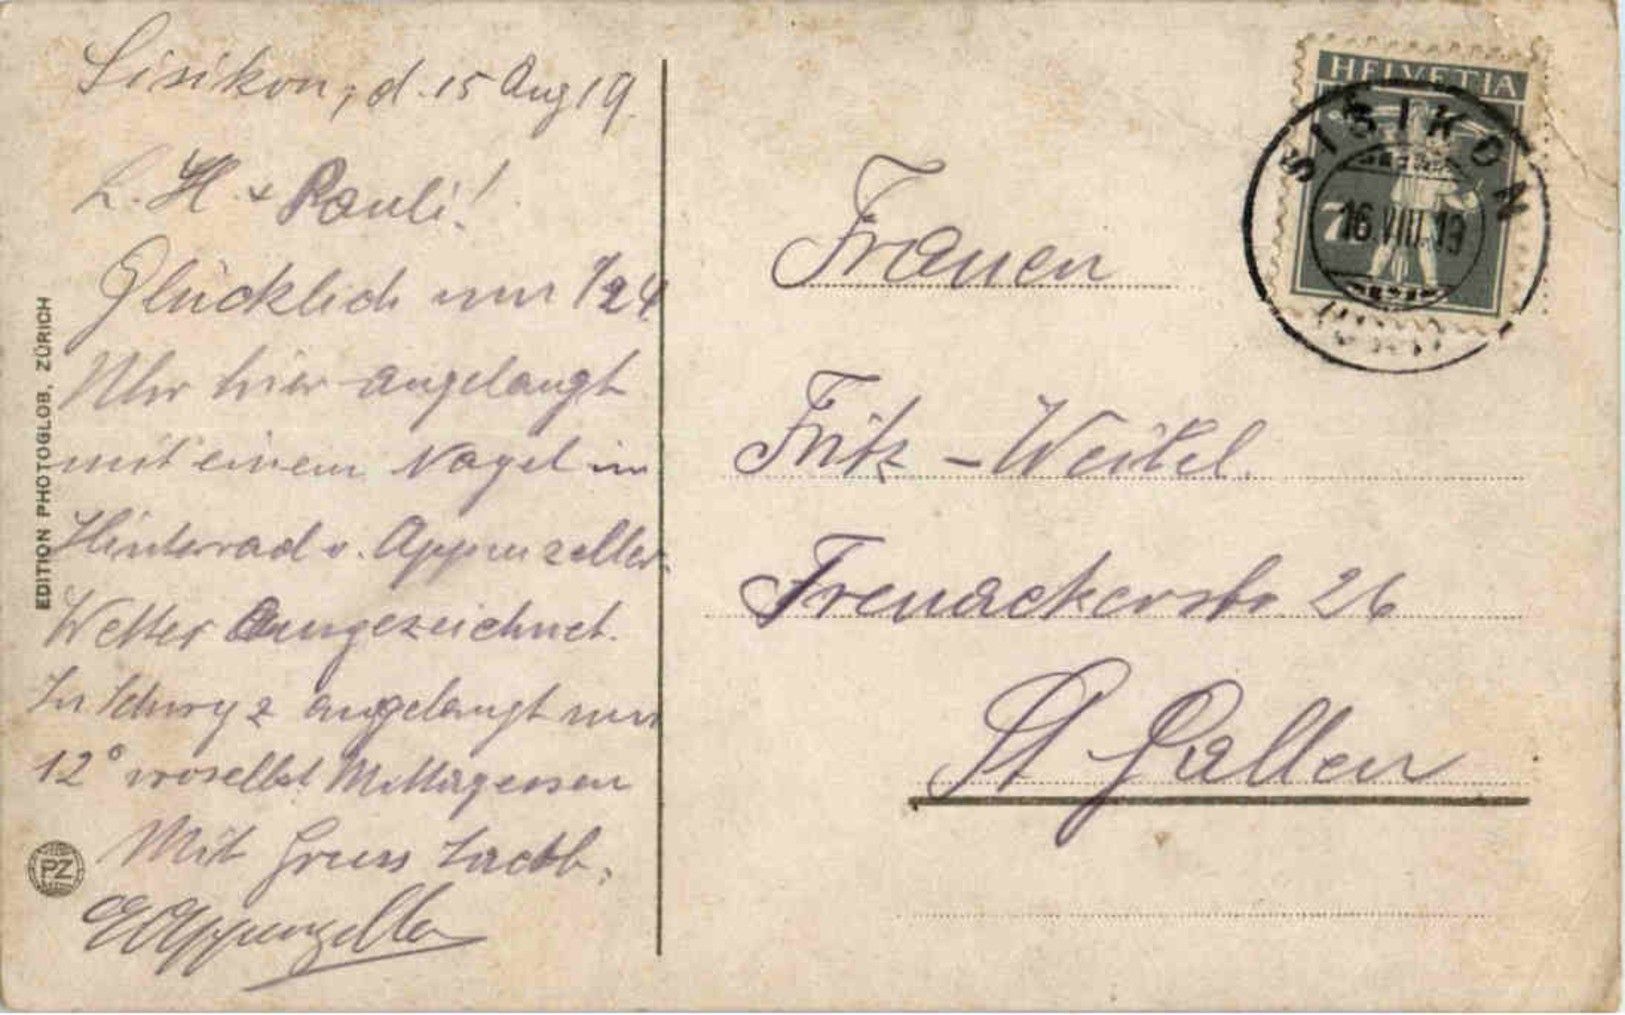 Sisikon, d. 15 Aug 19.
L. H. + Pauli!
Glücklich um 1/2 4
Uhr hier angelangt
mit einem Nagel im
Hinterrad v. Appenzeller.
Wetter Ausgezeichnet.
In Schwyz angelangt um
12° woselbst Mittagessen
Mit Gruss
Appenzeller
EDITION PHOTOGLOB, ZÜRICH
PZ
HELVETIA
7
SISIKON
16.VIII.19
Frauen
Fritz - Weikel.
26
St Gallen